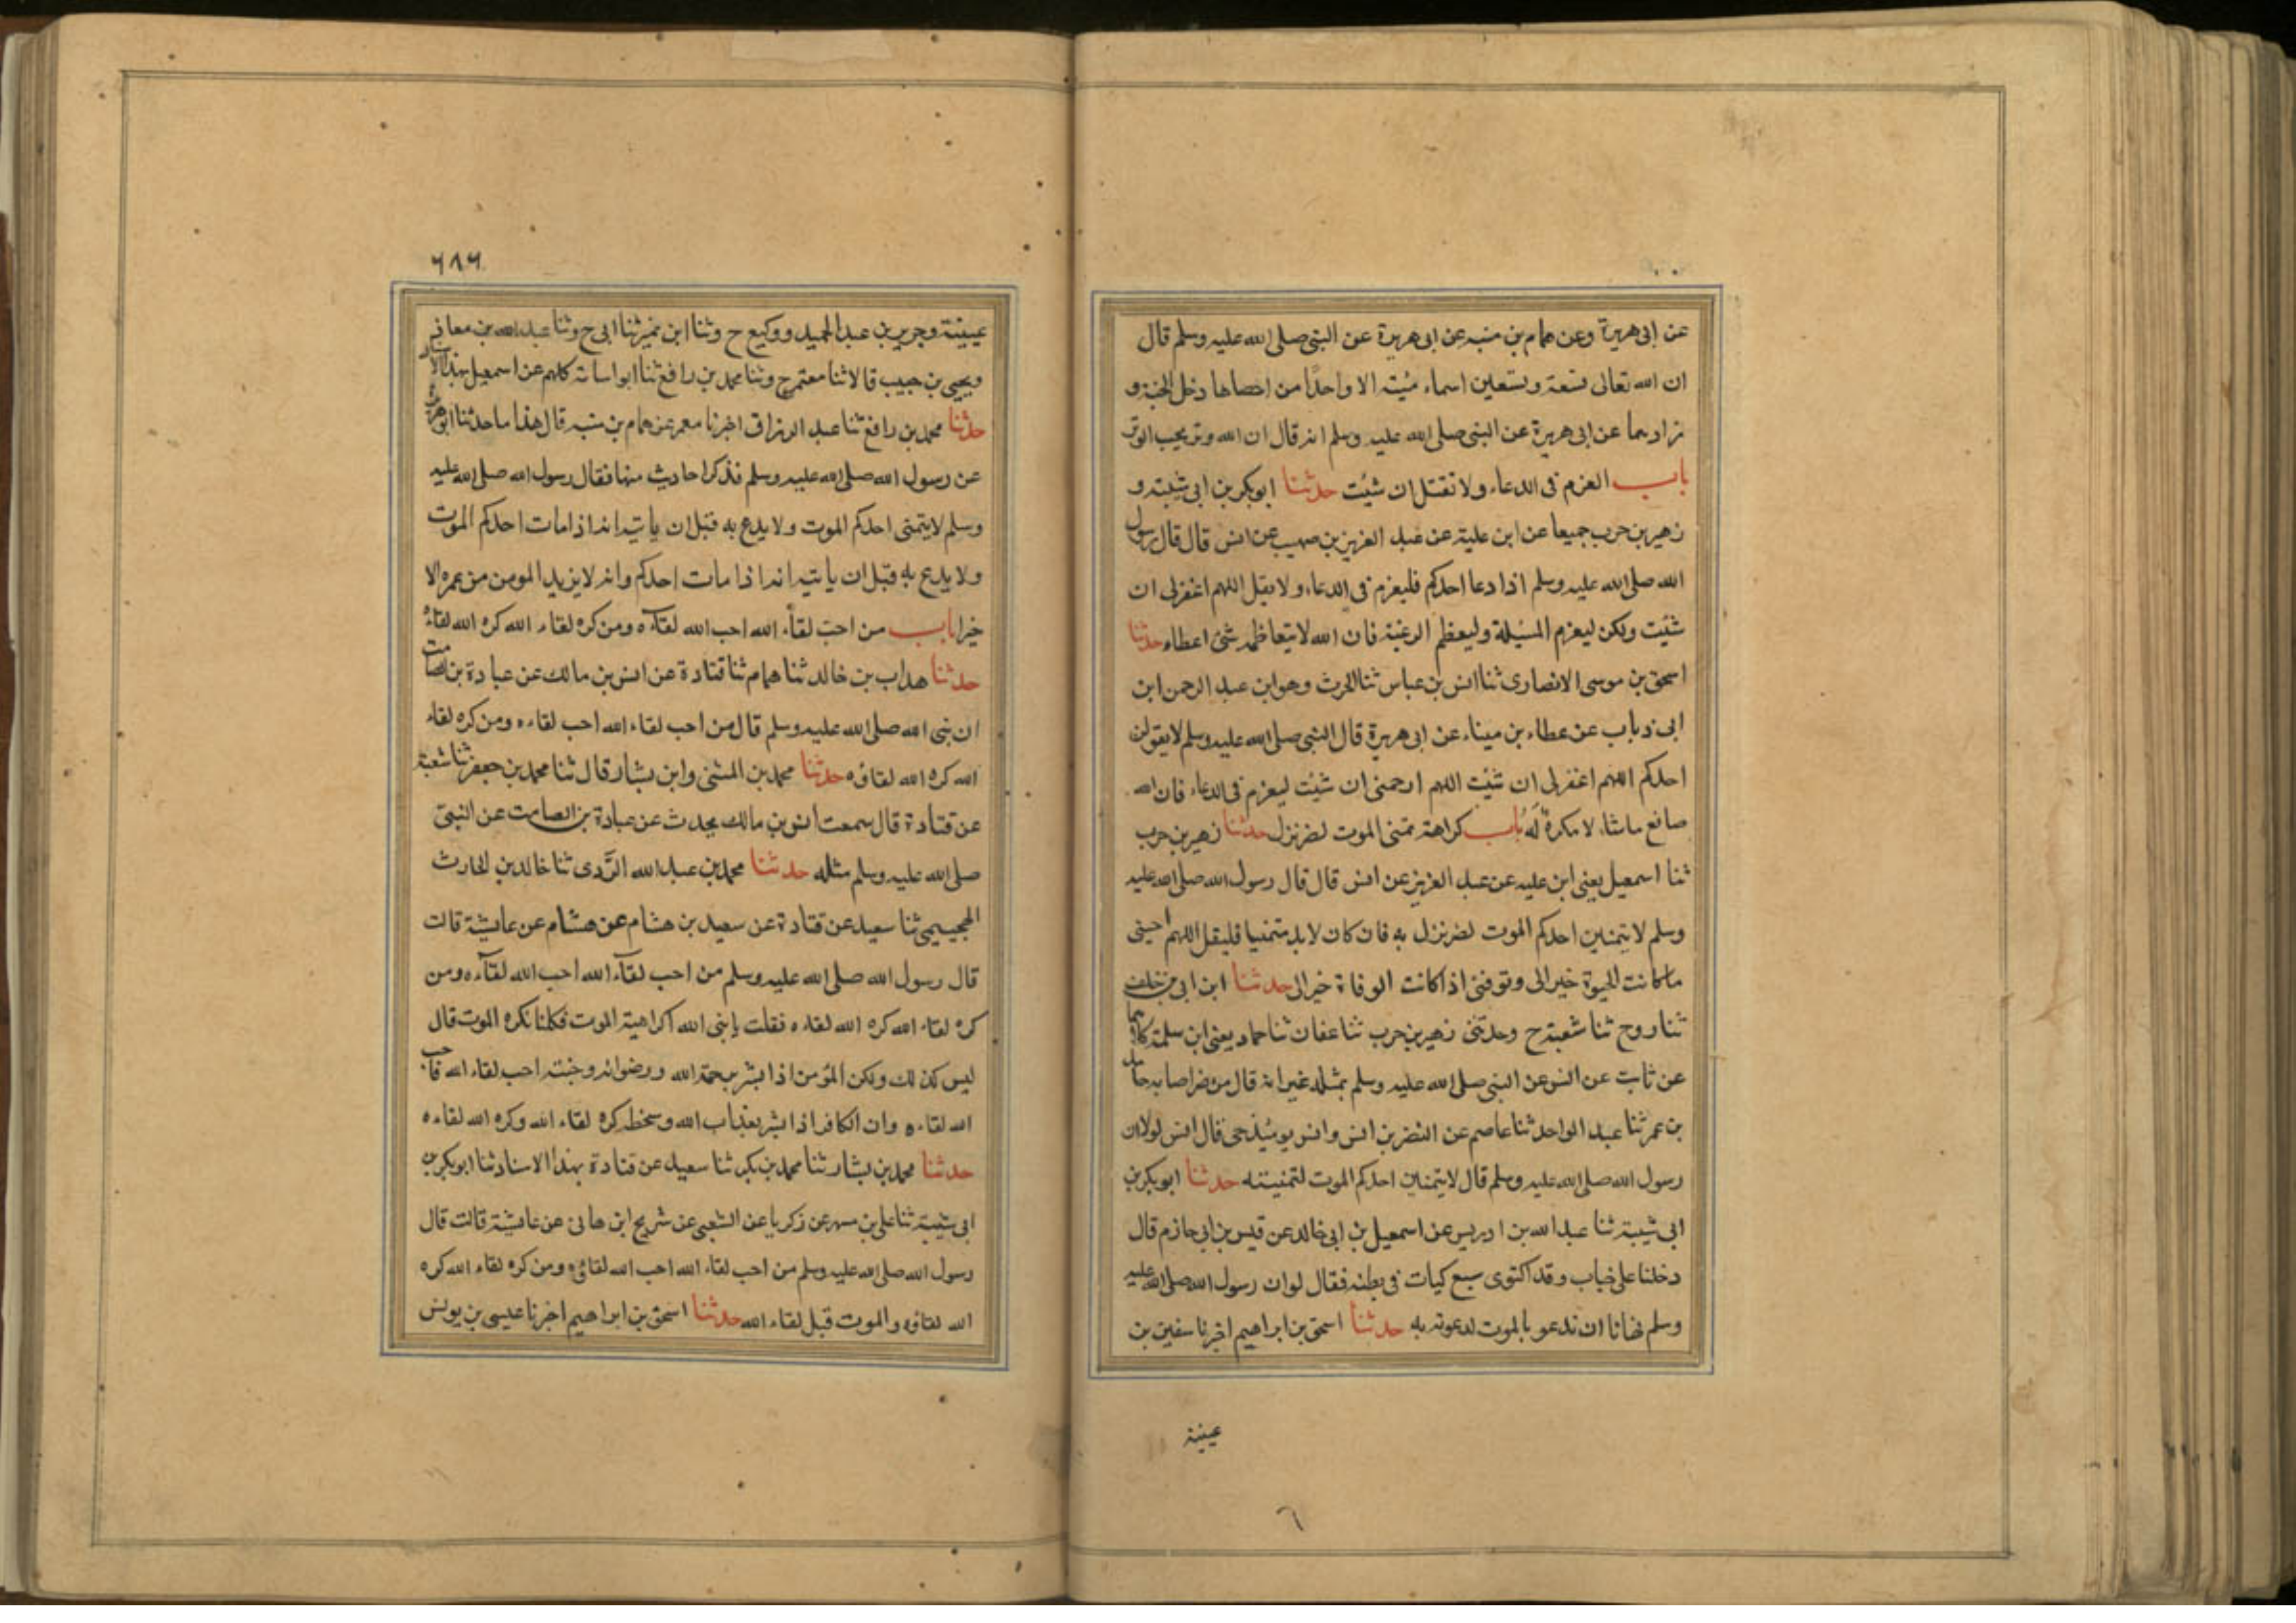 عن ابى هريرة وعن همام بن منبه عن ابى هريرة عن النبى صلى الله عليه وسلم قال
ان الله تعالى تسعة وتسعين اسماء مئة الا واحدًا من احصاها دخل الجنة و
زاد هما عن ابى هريرة عن النبى صلى الله عليه وسلم انه قال ان الله وتر يحب الوتر
باب العزم فى الدعاء ولا تقتل ان شئت حدثنا ابوبكر بن ابى شيبة و
زهير بن حرب جميعا عن ابن علية عن عبد العزيز بن صهيب عن انس قال قال رسول
الله صلى الله عليه وسلم اذا دعا احدكم فليعزم فى الدعاء ولا يقل اللهم اغفرلى ان
شئت ولكن ليعزم المسئلة وليعظم الرغبة فان الله لا يتعاظمه شئ اعطاه حدثنا
اسحق بن موسى الانصارى ثنا انس بن عباس ثنا الحرث وهو ابن عبد الرحمن ابن
ابى ذباب عن عطاء بن ميناء عن ابى هريرة قال النبى صلى الله عليه وسلم لا يقولن
احدكم اللهم اغفرلى ان شئت اللهم ارحمنى ان شئت ليعزم فى الدعاء فان الله
صانع ماشاء لا مكره له باب كراهة تمنى الموت لضر نزل حدثنا زهير بن حرب
ثنا اسمعيل يعنى ابن عليه عن عبد العزيز عن انس قال قال رسول الله صلى الله عليه
وسلم لا يتمنين احدكم الموت لضر نزل به فان كان لا بد متمنيا فليقل اللهم احينى
ما كانت الحيوة خيرالى وتوفنى اذا كانت الوفاة خيرالى حدثنا ابن ابى خلف
ثنا روح ثنا شعبة ح وحدثنى زهير بن حرب ثنا عفان ثنا حماد يعنى ابن سلمة كلاهما
عن ثابت عن انس عن النبى صلى الله عليه وسلم بمثله غير انه قال من ضر اصابه حامد
بن عمر ثنا عبد الواحد ثنا عاصم عن النضر بن انس وانس يومئذ حى قال انس لولا ان
رسول الله صلى الله عليه وسلم قال لا يتمنين احدكم الموت لتمنيته حدثنا ابوبكر بن
ابى شيبة ثنا عبد الله بن ادريس عن اسمعيل بن ابى خالد عن قيس بن ابى حازم قال
دخلنا على خباب وقد اكتوى سبع كيات فى بطنه فقال لوان رسول الله صلى الله عليه
وسلم نهانا ان ندعو بالموت لدعوته به حدثنا اسحق بن ابراهيم اخبرنا سفين بن
عيينة
٦
٦٨٦
عيينة وجرير بن عبد الحميد ووكيع ح وثنا ابن نمير ثنا ابى ح وثنا عبد الله بن معاذ
ويحيى بن حبيب قالا ثنا معتمر ح وثنا محمد بن رافع ثنا ابو اسامة كلهم عن اسمعيل بهذا الاسناد
حدثنا محمد بن رافع ثنا عبد الرزاق اخبرنا معمر عن همام بن منبه قال هذا ما حدثنا ابو هريرة
عن رسول الله صلى الله عليه وسلم فذكر احاديث منها فقال رسول الله صلى الله عليه
وسلم لا يتمنى احدكم الموت ولا يدع به قبل ان ياتيه انه اذا مات احدكم الموت
ولا يدع به قبل ان ياتيه انه اذا مات احدكم وانه لا يزيد المومن من عمره الا
خيرا باب من احب لقاء الله احب الله لقآءه ومن كره لقاء الله كره الله لقاءه
حدثنا هداب بن خالد ثنا همام ثنا قتادة عن انس بن مالك عن عبادة بن الصامت
ان نبى الله صلى الله عليه وسلم قال من احب لقاء الله احب لقاءه ومن كره لقاء
الله كره الله لقاؤه حدثنا محمد بن المثنى وابن بشار قال ثنا محمد بن جعفر ثنا شعبة
عن قتادة قال سمعت انس بن مالك يحدث عن عبادة بن الصامت عن النبى
صلى الله عليه وسلم مثله حدثنا محمد بن عبد الله الرَّدى ثنا خالد بن الحارث
الهجيمى ثنا سعيد عن قتادة عن سعيد بن هشام عن هشام عن عايشة قالت
قال رسول الله صلى الله عليه وسلم من احب لقآء الله احب الله لقآءه ومن
كره لقاء الله كره الله لقاءه فقلت يا نبى الله اكراهية الموت فكلنا نكره الموت قال
ليس كذلك ولكن المؤمن اذا بشر برحمة الله ورضوانه وجنته احب لقاء الله فاحب
الله لقاءه وان الكافر اذا بشر بعذاب الله وسخطه كره لقاء الله وكره الله لقاءه
حدثنا محمد بن بشار ثنا محمد بن بكر ثنا سعيد عن قتادة بهذا الاسناد ثنا ابوبكر بن
ابى شيبة ثنا على بن مسهر عن زكريا عن الشعبى عن شريح ابن هانى عن عايشة قالت قال
رسول الله صلى الله عليه وسلم من احب لقاء الله احب الله لقائه ومن كره لقاء الله كره
الله لقاؤه والموت قبل لقاء الله حدثنا اسحق بن ابراهيم اخبرنا عيسى بن يونس